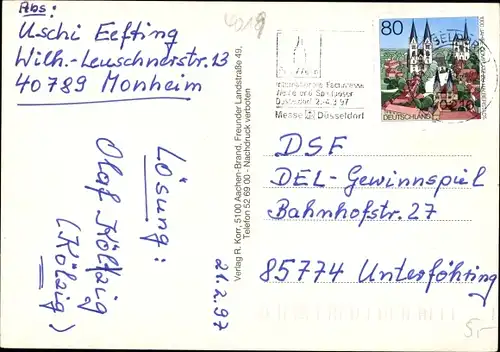 Abs:
Uschi Eefting
Wilh.-Leuschnerstr. 13
40789 Monheim
Lösung:
Olaf Kölzig
(Kölzig)
21.2.97
Verlag R. Korr, 5100 Aachen-Brand, Freunder Landstraße 49,
Telefon 52 69 00 - Nachdruck verboten
Internationale Fachmesse
Weine und Spirituosen
Düsseldorf 2.-4.3.97
Messe Düsseldorf
80
DEUTSCHLAND
DSF
DEL-Gewinnspiel
Bahnhofstr. 27
85774 Unterföhring
5,-